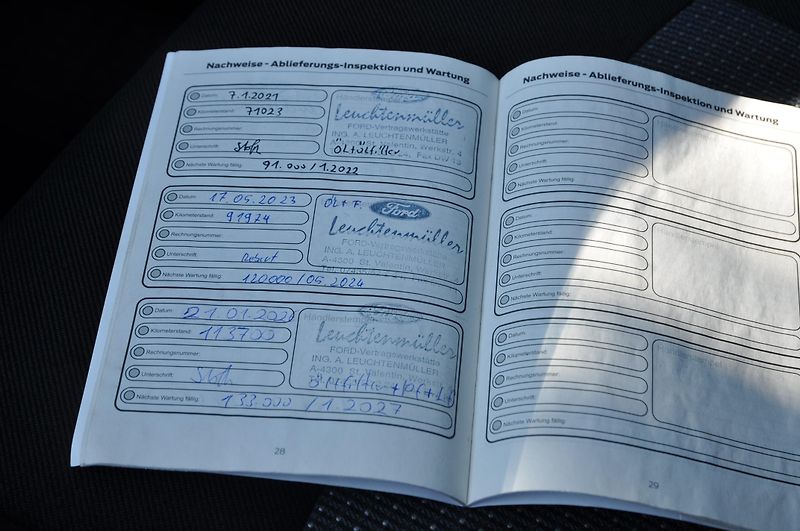 Nachweise - Ablieferungs-Inspektion und Wartung
Datum: 7.1.2021
Kilometerstand: 71023
Rechnungsnummer:
Unterschrift:
Nächste Wartung fällig: 91.000/1.2022
Händlerstempel
Leuchtenmüller
FORD-Vertragswerkstätte
ING. A. LEUCHTENMÜLLER
St. Valentin, Werkstr. 4
Öl+Ölfilter
Datum: 17.05.2023
Kilometerstand: 91974
Rechnungsnummer:
Unterschrift:
Nächste Wartung fällig: 120000/05.2024
Öl+F.
Ford
Leuchtenmüller
FORD-Vertragswerkstätte
ING. A. LEUCHTENMÜLLER
A-4300 St. Valentin,
Datum: 21.01.202
Kilometerstand: 113700
Rechnungsnummer:
Unterschrift:
Nächste Wartung fällig: 133.000/1.2027
Händlerstempel
Leuchtenmüller
FORD-Vertragswerkstätte
ING. A. LEUCHTENMÜLLER
A-4300 St. Valentin,
28
Nachweise - Ablieferungs-Inspektion und Wartung
Datum:
Kilometerstand:
Rechnungsnummer:
Unterschrift:
Nächste Wartung fällig:
Datum:
Kilometerstand:
Rechnungsnummer:
Unterschrift:
Nächste Wartung fällig:
Datum:
Kilometerstand:
Rechnungsnummer:
Unterschrift:
Nächste Wartung fällig:
29